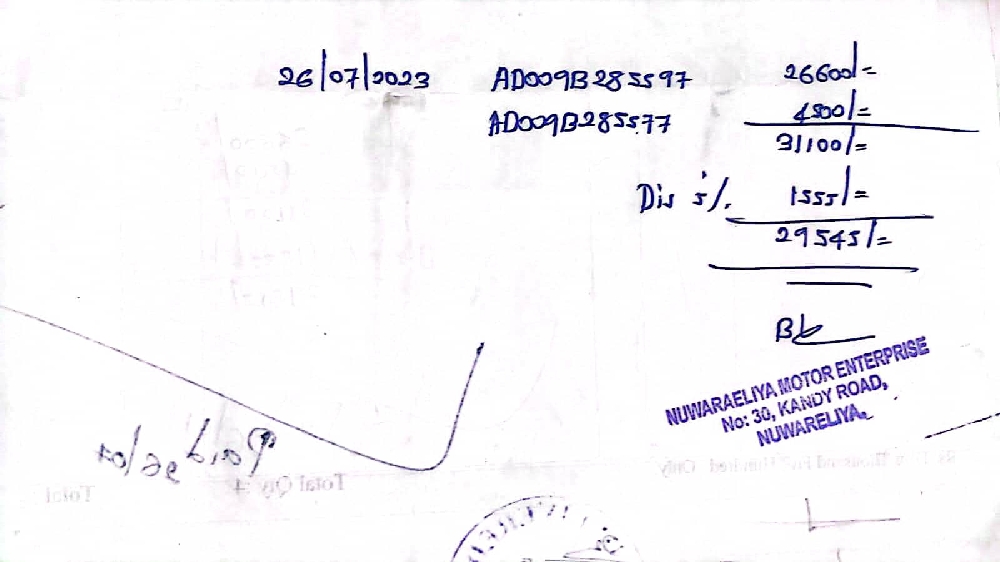 26/07/2023 AD009B285597 26600/=
AD009B285577 4500/=
31100/=
Dis 5%. 1555/=
29545/=
NUWARAELIYA MOTOR ENTERPRISE
No: 30, KANDY ROAD,
NUWARELIYA.
Total Qty :
Total